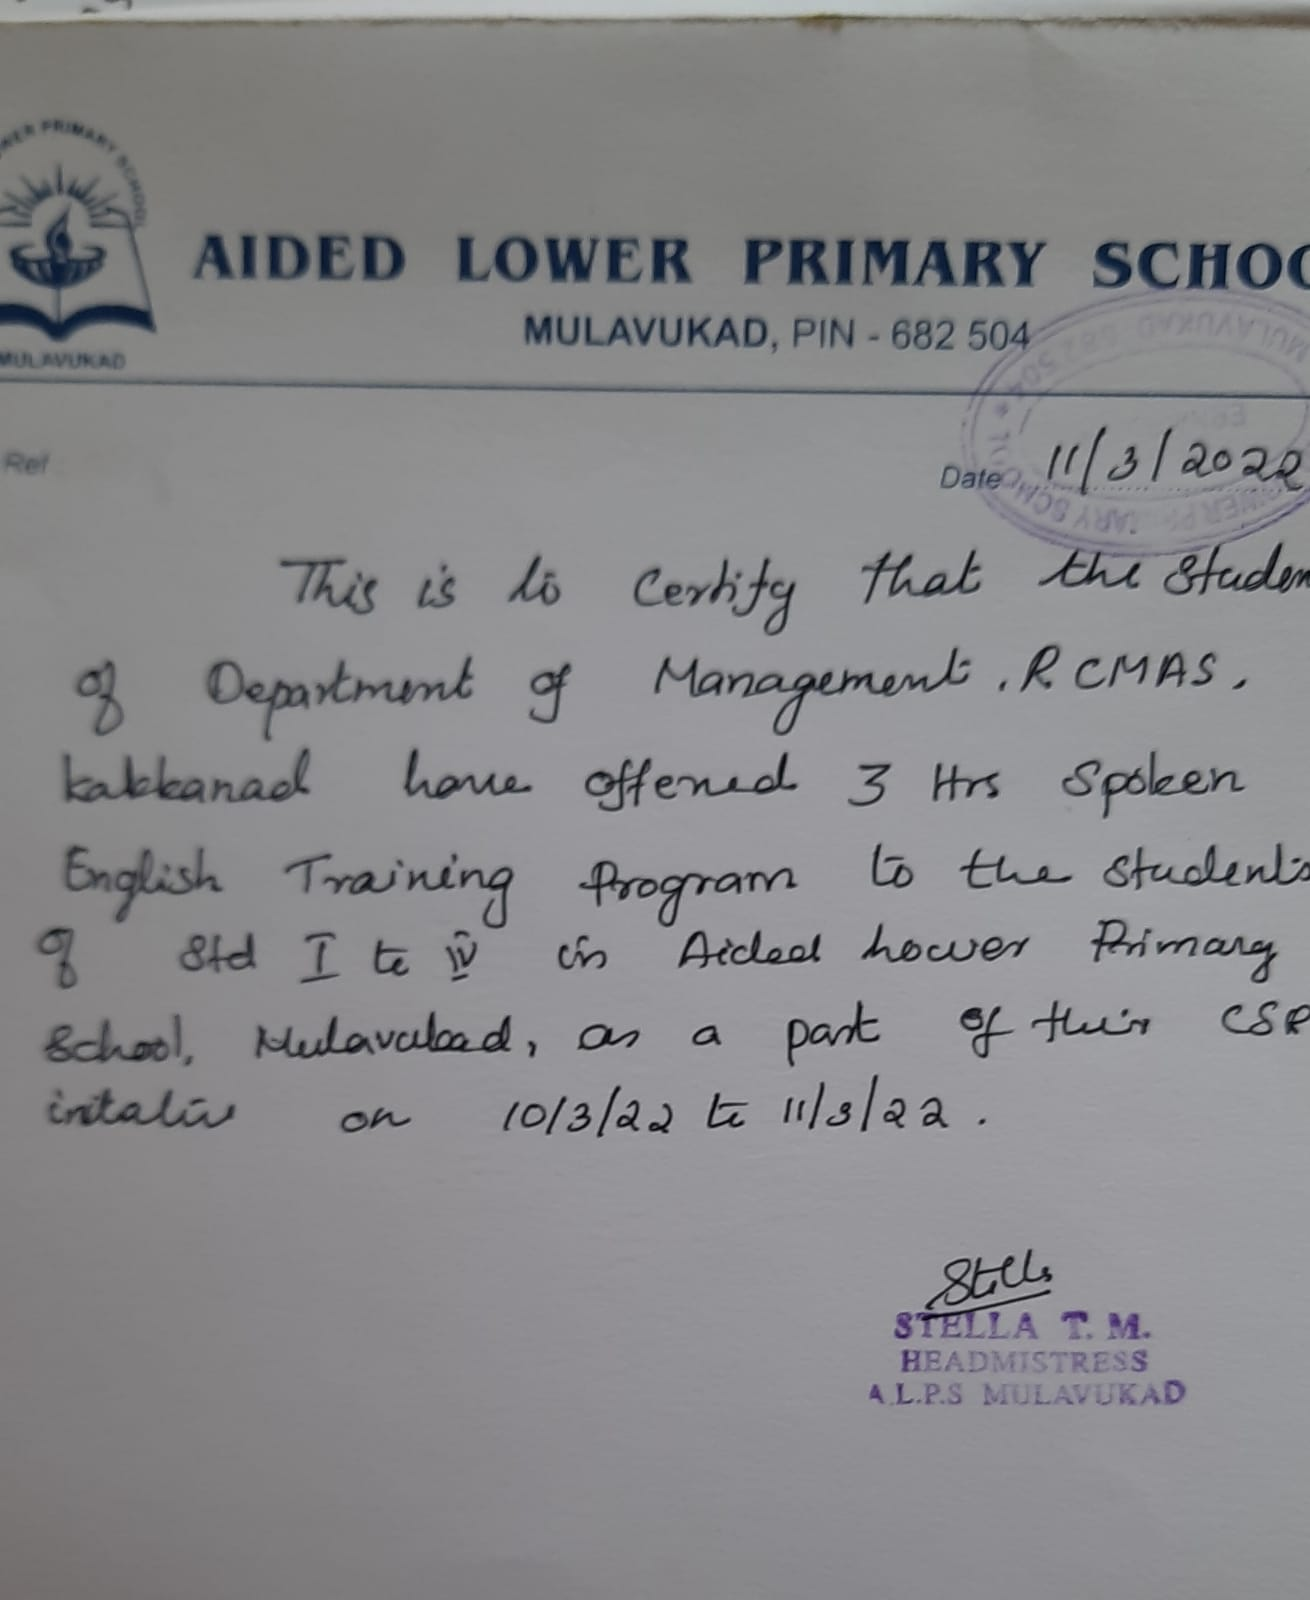 WER PRIMARY SCHOOL
MULAVUKAD
AIDED LOWER PRIMARY SCHOO
MULAVUKAD, PIN - 682 504
MULAVUKAD 682 504 *
Ref
Date 11/3/2022
This is to Certify that the Studen
of Department of Management, RCMAS,
Kakkanad have offered 3 Hrs Spoken
English Training Program to the Students
of Std I to IV in Aided Lower Primary
School, Mulavukad, as a part of their CSR
initative on 10/3/22 to 11/3/22.
Stella
STELLA T. M.
HEADMISTRESS
A.L.P.S MULAVUKAD